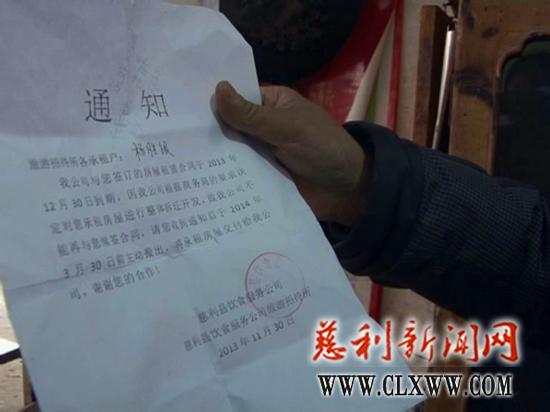 通知
旅游招待所各承租户：杨胜绒
我公司与您签订的房屋租赁合同于2013年
12月30日到期，因我公司根据商务局的要求决
定对您承租房屋进行整体拆迁开发，故我公司不
能再与您续签合同，请您收到通知后于2014年
3月30日前主动搬出，将承租房屋交付给我公
司，谢谢您的合作！
慈利县饮食服务公司
慈利县饮食服务公司旅游招待所
2013年11月30日
慈利新闻网
WWW.CLXWW.COM